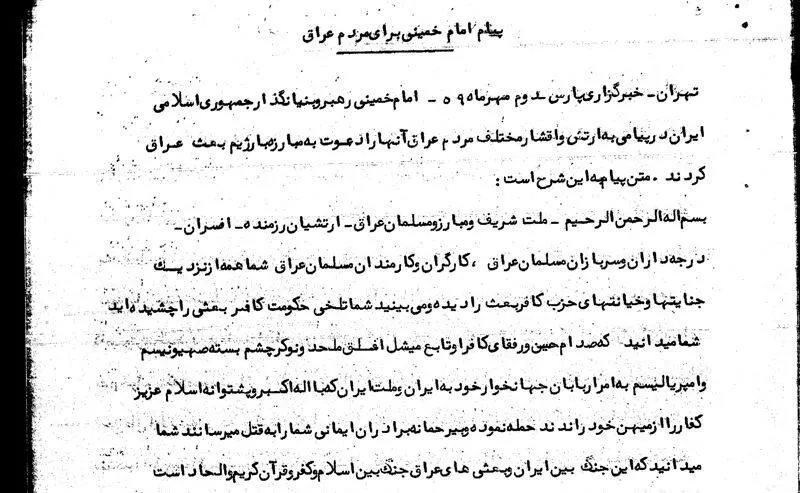 پیام امام خمینی برای مردم عراق
تهران ـ خبرگزاری پارس ـ دوم مهرماه ۵۹ ـ امام خمینی رهبر و بنیانگذار جمهوری اسلامی
ایران در پیامی به ارتش و اقشار مختلف مردم عراق آنها را دعوت به مبارزه با رژیم بعث عراق
کردند . متن پیام به این شرح است :
بسم اله الرحمن الرحیم ـ ملت شریف و مبارز و مسلمان عراق ـ ارتشیان رزمنده ـ افسران ـ
درجه داران و سربازان مسلمان عراق ، کارگران و کارمندان مسلمان عراق شما همه از نزدیک
جنایتها و خیانتهای حزب کافر بعث را دیده و می بینید شما تلخی حکومت کافر بعثی را چشیده اید
شما میدانید که صدام حسین و رفقای کافر او تابع میشل افلق ملحد و نوکر چشم بسته صهیونیسم
و امپریالیسم به امر اربابان جهانخوار خود به ایران و ملت ایران که با اله اکبر و پشتوانه اسلام عزیز
کفار را از میهن خود راندند حمله نموده و بیرحمانه برادران ایمانی شما را به قتل میرسانند شما
میدانید که این جنگ بین ایران و بعثی های عراق جنگ بین اسلام و کفر و قرآن کریم و الحاد است